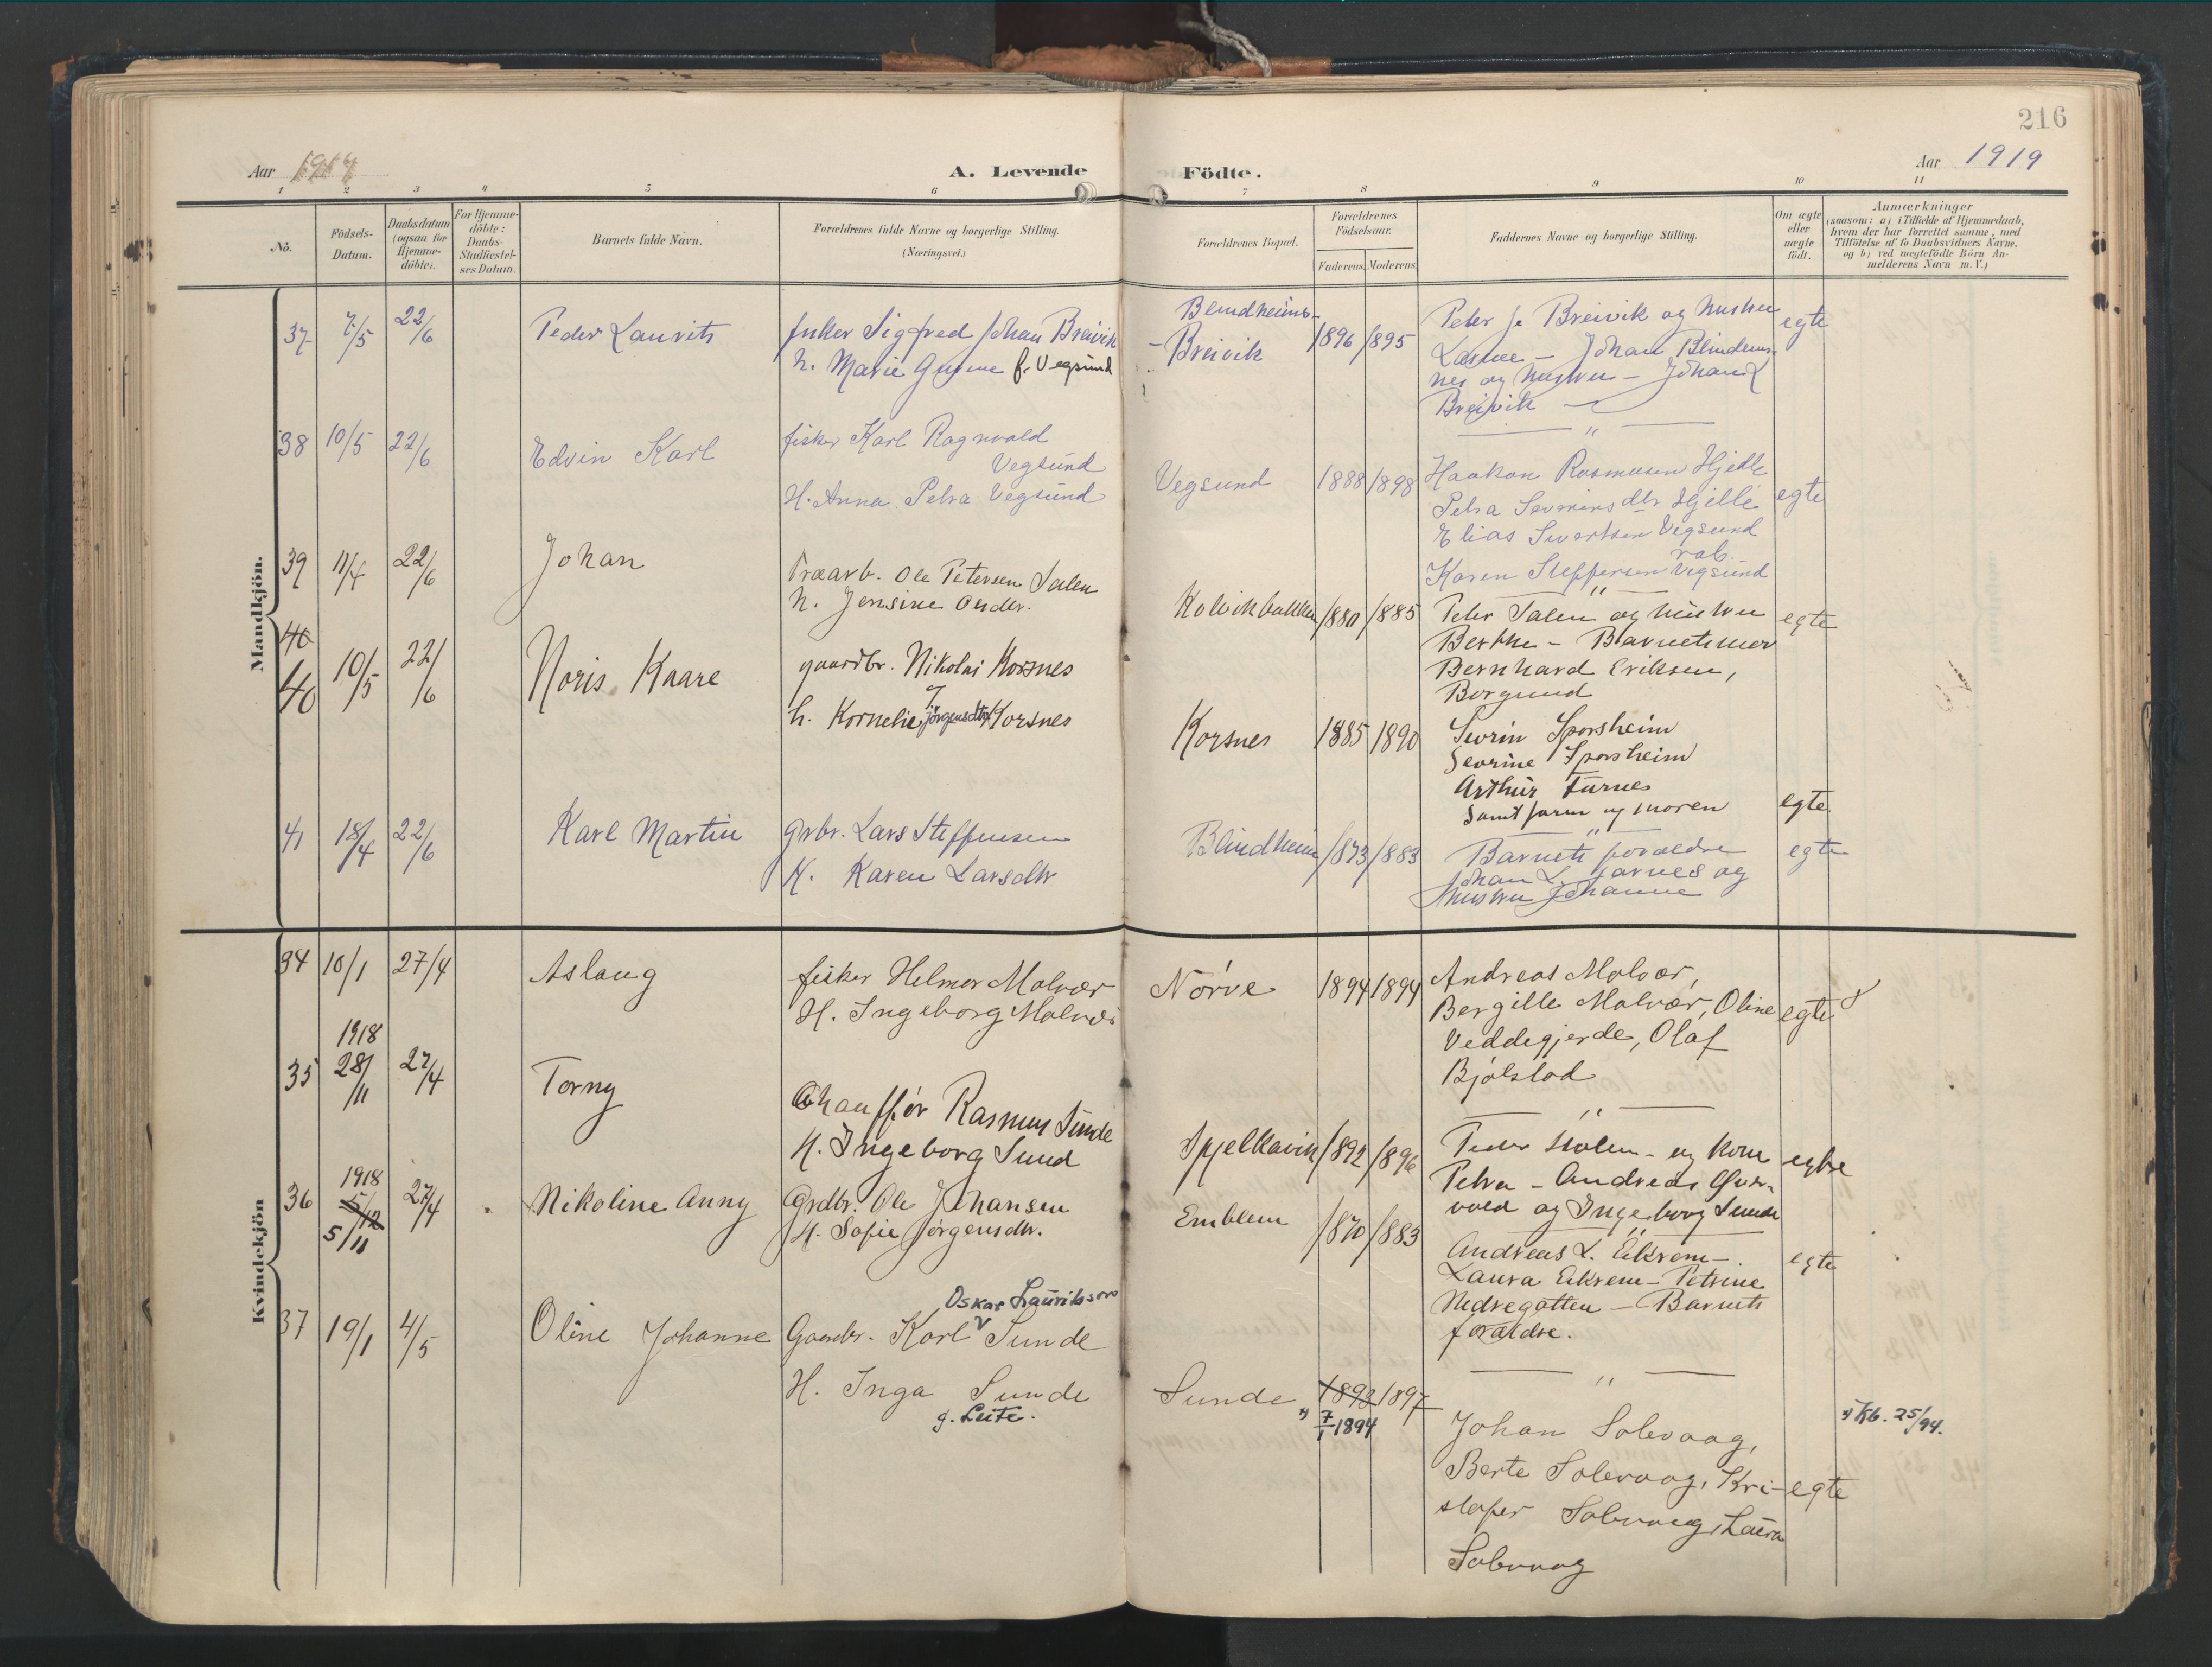 216
Aar 1919
A. Levende Födte.
Aar 1919
1 2 3 4 5 6 7 8 9 10 11
Nò.
Födsels-
Datum.
Daabsdatum
(ogsaa for
Hjemme-
döbte).
For Hjemme-
döbte:
Daabs-
Stadfæstel-
ses Datum.
Barnets fulde Navn.
Forældrenes fulde Navne og borgerlige Stilling.
(Næringsvei.)
Forældrenes Bopæl.
Forældrenes
Födselsaar.
Faderens. Moderens.
Faddernes Navne og borgerlige Stilling.
Om ægte
eller
uægte
födt.
Anmærkninger
(saasom: a) i Tilfælde af Hjemmedaab,
hvem der har forrettet samme, med
Tilföielse af to Daabsvidners Navne,
og b) ved uægtefödte Börn An-
melderens Navn m. V.)
Mandkjön.
37 7/5 22/6
Peder Laurits
fisker Sigfred Johan Breivik
h. Marie Gurine f. Vegsund
Blindheims-
-Breivik
1896 1895
Peter J. Breivik og hustru
- Johan Blindems-
nes og hustru - Johan L
Breivik
egte
38 10/5 22/6
Edvin Karl
fisker Karl Ragnvald
Vegsund
H. Anna Petra Vegsund
Vegsund
1888 1898
Haakon Rasmusen Hjelle
Petra Severinsdtr Hjelle
Elias Sivertsen Vegsund
Karen Steffensen Vegsund
egte
39 11/4 22/6
Johan
Træarb. Ole Petersen Salen
h. Jensine Olsdtr.
Kolvikbakken
1880 1885
Peter Salen og hustru
Berthe - Barnets mor
Bernhard Eriksen,
Borgund
egte
40
40 10/5 22/6
Noris Kaare
gaardbr. Nikolai Korsnes
h. Kornelie J. Jørgensdtr Korsnes
Korsnes
1885 1890
Sevrin Sporsheim
Sevrine Sporsheim
Arthur Furnes
samt faren og moren
egte
41 18/4 22/6
Karl Martin
Grbr. Lars Steffensen
H. Karen Larsdtr
Blindheim
1873 1883
Barnets foraeldre
Johan L. Farnes og
hustru Johanne
egte
Kvindekjön
34 10/1 27/4
Aslaug
fisker Helmer Molvær
H. Ingeborg Molvær
Nørve
1894 1894
Andreas Molvær,
Bergille Molvær, Oline
Veddegjerde, Olaf
Bjølstad
egte
35 1918 28/11 27/4
Torny
Chauffør Rasmus Sunde
H. Ingeborg Sund
Spjelkavik
1892 1896
Peder Holen - og kone
Petra - Andreas
vold og Ingeborg Sunde
egte
36 1918 5/12 5/11 27/4
Nikoline Anny
Grdbr. Ole Johansen
H. Sofie Jørgensdtr.
Emblem
1870 1883
Andreas L. Eikrem -
Laura Eikrem - Petrine
Nedregotten - Barnets
foraldre.
egte
37 19/1 4/5
Oline Johanne
Oskar Lauritssøn
Gaardbr. Karl Sunde
H. Inga Sunde
f. Leite.
Sunde
1893 1897
x) 7/1 1894
Johan Solevaag,
Berte Solevaag, Kri-
stofer Solevaag, Laura
Solevaag
egte
x) Kb. 25/94.